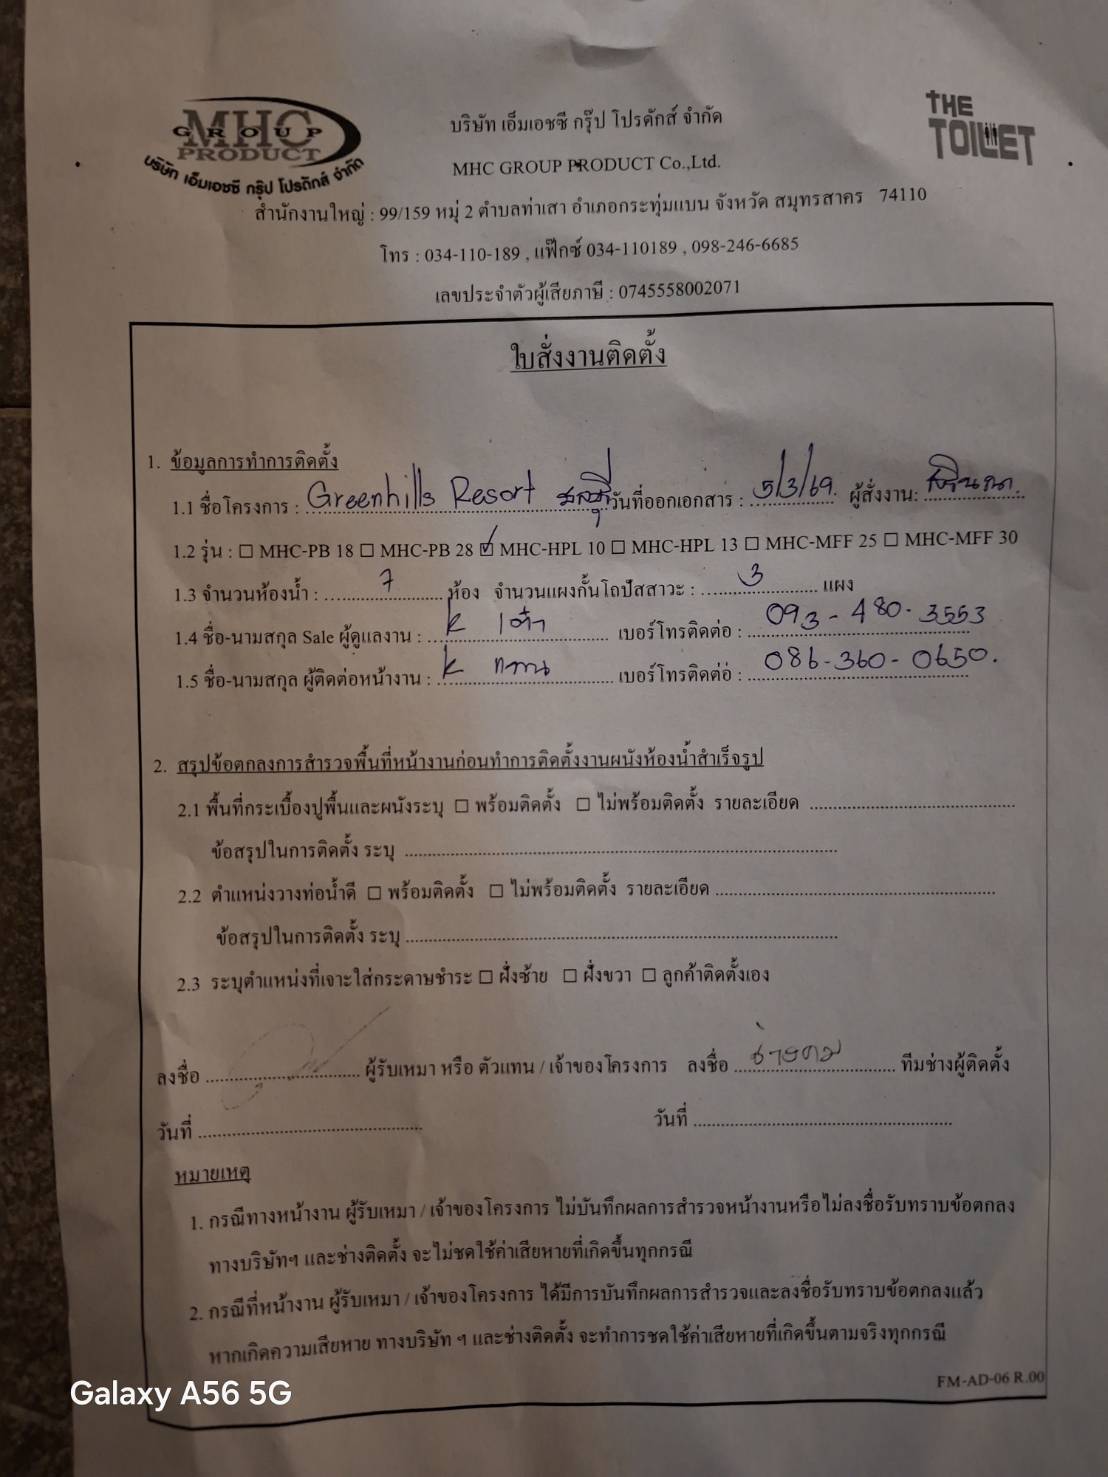 MHC
GROUP
PRODUCT
บริษัท เอ็มเอชซี กรุ๊ป โปรดักส์ จำกัด
THE
TOILET
บริษัท เอ็มเอชซี กรุ๊ป โปรดักส์ จำกัด
MHC GROUP PRODUCT Co.,Ltd.
สำนักงานใหญ่ : 99/159 หมู่ 2 ตำบลท่าเสา อำเภอกระทุ่มแบน จังหวัด สมุทรสาคร 74110
โทร : 034-110-189 , แฟ๊กซ์ 034-110189 , 098-246-6685
เลขประจำตัวผู้เสียภาษี : 0745558002071
ใบสั่งงานติดตั้ง
1. ข้อมูลการทำการติดตั้ง
1.1 ชื่อโครงการ : Greenhills Resort วันที่ออกเอกสาร : 5/3/69. ผู้สั่งงาน:
1.2 รุ่น : ☐ MHC-PB 18 ☐ MHC-PB 28 ☑ MHC-HPL 10 ☐ MHC-HPL 13 ☐ MHC-MFF 25 ☐ MHC-MFF 30
1.3 จำนวนห้องน้ำ : 7 ห้อง จำนวนแผงกั้นโถปัสสาวะ : 3 แผง
1.4 ชื่อ-นามสกุล Sale ผู้ดูแลงาน : k เต๋า เบอร์โทรติดต่อ : 093-480-3553
1.5 ชื่อ-นามสกุล ผู้ติดต่อหน้างาน : k เบอร์โทรติดต่อ : 086-360-0650.
2. สรุปข้อตกลงการสำรวจพื้นที่หน้างานก่อนทำการติดตั้งงานผนังห้องน้ำสำเร็จรูป
2.1 พื้นที่กระเบื้องปูพื้นและผนังระบุ ☐ พร้อมติดตั้ง ☐ ไม่พร้อมติดตั้ง รายละเอียด
ข้อสรุปในการติดตั้ง ระบุ
2.2 ตำแหน่งวางท่อน้ำดี ☐ พร้อมติดตั้ง ☐ ไม่พร้อมติดตั้ง รายละเอียด
ข้อสรุปในการติดตั้ง ระบุ
2.3 ระบุตำแหน่งที่เจาะใส่กระดาษชำระ ☐ ฝั่งซ้าย ☐ ฝั่งขวา ☐ ลูกค้าติดตั้งเอง
ลงชื่อ ผู้รับเหมา หรือ ตัวแทน / เจ้าของโครงการ ลงชื่อ ช่างคม ทีมช่างผู้ติดตั้ง
วันที่ วันที่
หมายเหตุ
1. กรณีทางหน้างาน ผู้รับเหมา / เจ้าของโครงการ ไม่บันทึกผลการสำรวจหน้างานหรือไม่ลงชื่อรับทราบข้อตกลง
ทางบริษัทฯ และช่างติดตั้ง จะไม่ชดใช้ค่าเสียหายที่เกิดขึ้นทุกกรณี
2. กรณีที่หน้างาน ผู้รับเหมา / เจ้าของโครงการ ได้มีการบันทึกผลการสำรวจและลงชื่อรับทราบข้อตกลงแล้ว
หากเกิดความเสียหาย ทางบริษัท ฯ และช่างติดตั้ง จะทำการชดใช้ค่าเสียหายที่เกิดขึ้นตามจริงทุกกรณี
FM-AD-06 R.00
Galaxy A56 5G